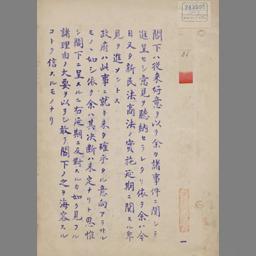 閣下ハ従来好意ヲ以テ余ノ諸事件ニ関シテ
進呈セシ意見ヲ聴納セラレタリ依テ余ハ今
日又タ新民法商法ノ実施延期ニ関スル卑
見ヲ進メントス
政府ハ此事ニ就キ未タ確乎タル意向アラサル
モノヽ如シ依テ余ハ其決断ハ未定ナリト思惟
シ閣下ニ呈スルニ右延期ニ反対スル
諸理由ノ大要ヲ以テシ敢テ閣下ノ之ヲ海容スル
コトヲ信スルモノナリ
一